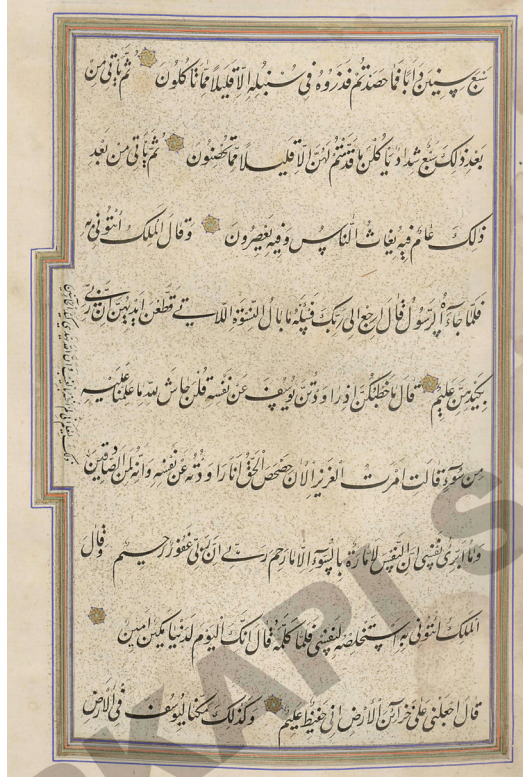 سَبْعَ سِنِينَ دَأَبًا فَمَا حَصَدْتُمْ فَذَرُوهُ فِي سُنْبُلِهِ إِلَّا قَلِيلًا مِمَّا تَأْكُلُونَ ثُمَّ يَأْتِي مِنْ
بَعْدِ ذَلِكَ سَبْعٌ شِدَادٌ يَأْكُلْنَ مَا قَدَّمْتُمْ لَهُنَّ إِلَّا قَلِيلًا مِمَّا تُحْصِنُونَ ثُمَّ يَأْتِي مِنْ بَعْدِ
ذَلِكَ عَامٌ فِيهِ يُغَاثُ النَّاسُ وَفِيهِ يَعْصِرُونَ وَقَالَ الْمَلِكُ ائْتُونِي بِهِ
فَلَمَّا جَاءَهُ الرَّسُولُ قَالَ ارْجِعْ إِلَى رَبِّكَ فَسْئَلْهُ مَا بَالُ النِّسْوَةِ اللَّاتِي قَطَّعْنَ أَيْدِيَهُنَّ إِنَّ رَبِّي
بِكَيْدِهِنَّ عَلِيمٌ قَالَ مَا خَطْبُكُنَّ إِذْ رَاوَدْتُنَّ يُوسُفَ عَنْ نَفْسِهِ قُلْنَ حَاشَ لِلَّهِ مَا عَلِمْنَا عَلَيْهِ
مِنْ سُوءٍ قَالَتِ امْرَأَتُ الْعَزِيزِ الْآنَ حَصْحَصَ الْحَقُّ أَنَا رَاوَدْتُهُ عَنْ نَفْسِهِ وَإِنَّهُ لَمِنَ الصَّادِقِينَ
وَمَا أُبَرِّئُ نَفْسِي إِنَّ النَّفْسَ لَأَمَّارَةٌ بِالسُّوءِ إِلَّا مَا رَحِمَ رَبِّي إِنَّ رَبِّي غَفُورٌ رَحِيمٌ وَقَالَ
الْمَلِكُ ائْتُونِي بِهِ أَسْتَخْلِصْهُ لِنَفْسِي فَلَمَّا كَلَّمَهُ قَالَ إِنَّكَ الْيَوْمَ لَدَيْنَا مَكِينٌ أَمِينٌ
قَالَ اجْعَلْنِي عَلَى خَزَائِنِ الْأَرْضِ إِنِّي حَفِيظٌ عَلِيمٌ وَكَذَلِكَ مَكَّنَّا لِيُوسُفَ فِي الْأَرْضِ
ذلك ليعلم اني لم اخنه بالغيب وان الله لا يهدي كيد الخائنين
KAPI S